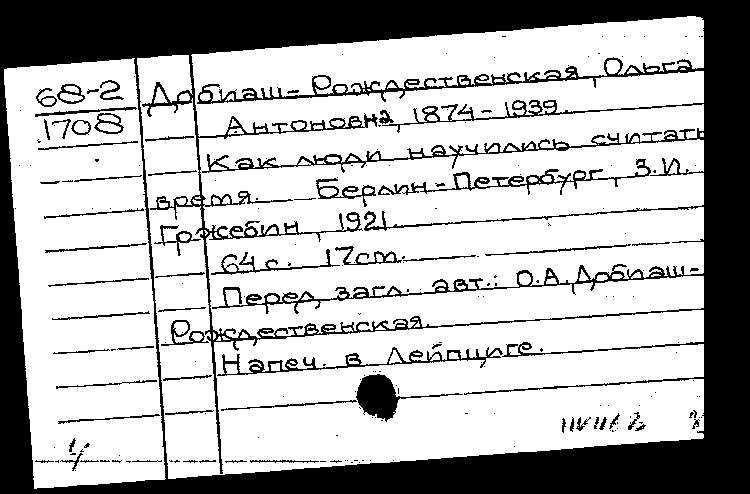 68-2 Добиаш-Рождественская, Ольга
1708 Антоновна, 1874-1939.
Как люди научились считать
время. Берлин-Петербург, З.И.
Гржебин, 1921.
64 с. 17cm.
Перед загл. авт.: О.А.Добиаш-
Рождественская.
Напеч. в Лейпциге.